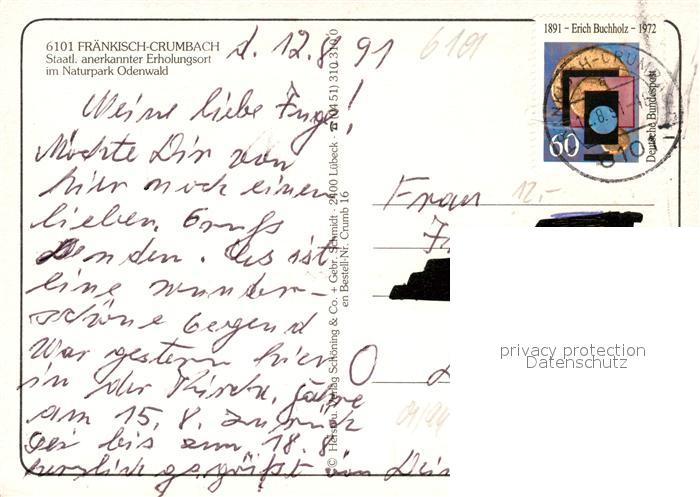 6101 FRÄNKISCH-CRUMBACH
Staatl. anerkannter Erholungsort
im Naturpark Odenwald
d. 12.8.91
6101
Meine liebe Inge!
Möchte Dir von
hier noch einen
lieben Gruß
senden. Es ist
eine wunder-
schöne Gegend
War gestern hier
in der Kirche. fahre
am 15. 8. zurück
bis zum 18.8.
herzlich gegrüßt von Dein
© Herst. u. Verlag Schöning & Co. + Gebr. Schmidt · 2400 Lübeck · ☎ (04 51) 310 310
en Bestell-Nr. Crumb 16
1891 – Erich Buchholz – 1972
Deutsche Bundespost
60
Frau
12.-
privacy protection
Datenschutz